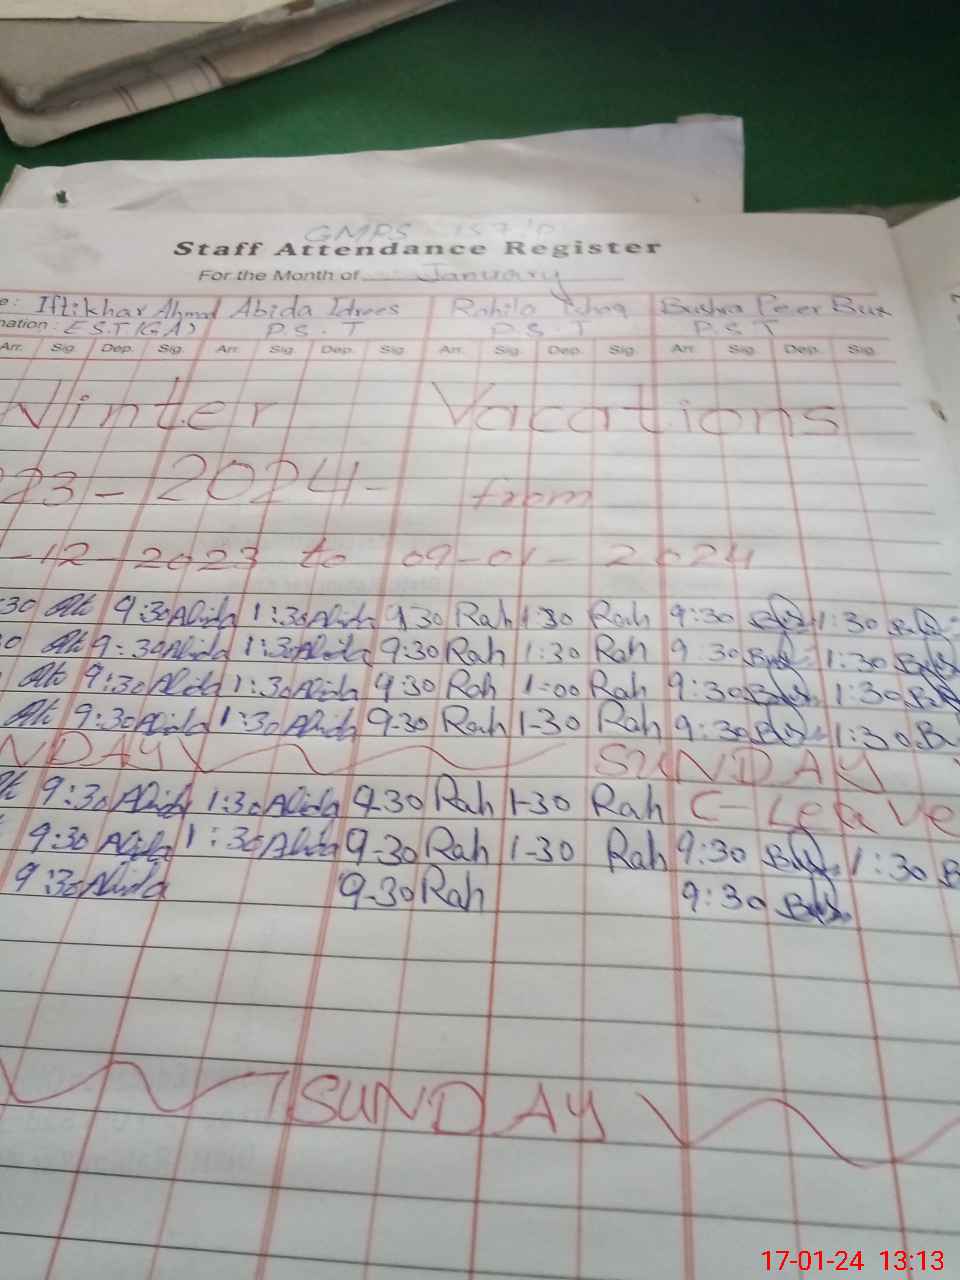 GMPS 157/D
Staff Attendance Register
For the Month of January
e: Iftikhar Ahmad Abida Idrees Rahila Ishaq Bushra Peer Bux
nation: E.S.T(GA) P.S.T P.S.T P.S.T
Arr. Sig. Dep. Sig. Arr. Sig. Dep. Sig. Arr. Sig. Dep. Sig. Arr. Sig. Dep. Sig.
Winter Vacations
23-2024- from
-12-2023 to 09-01-2024
:30 9:30 Abida 1:30 Abida 9.30 Rah 1.30 Rah 9:30 Bus 1:30 Bus
0 9:30 Abida 1:30 Abida 9:30 Rah 1:30 Rah 9:30 Bus 1:30 Bus
9:30 Abida 1:30 Abida 9.30 Rah 1-00 Rah 9:30 Bus 1:30 Bus
9:30 Abida 1:30 Abida 9-30 Rah 1-30 Rah 9:30 Bus 1:30 B
NDAY SUNDAY
9:30 Abida 1:30 Abida 9.30 Rah 1-30 Rah C-Leave
9:30 Abida 1:30 Abida 9-30 Rah 1-30 Rah 9:30 Bus 1:30 B
9:30 Abida 9-30 Rah 9:30 Bus
SUNDAY
17-01-24 13:13